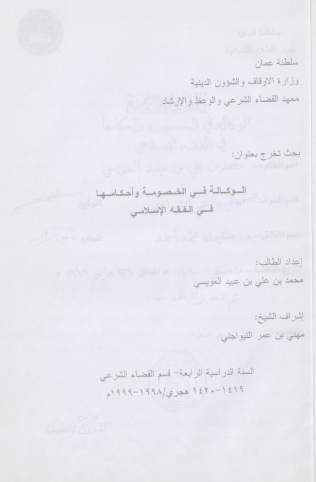 سلطنة عمان
وزارة الأوقاف والشؤون الدينية
معهد القضاء الشرعي والوعظ والإرشاد
بحث تخرج بعنوان:
الوكالة في الخصومة وأحكامها
في الفقه الإسلامي
إعداد الطالب:
محمد بن علي بن عبيد العويسي
إشراف الشيخ:
مهني بن عمر التيواجني
السنة الدراسية الرابعة- قسم القضاء الشرعي
١٤١٩-١٤٢٠ هجري/١٩٩٨-١٩٩٩م